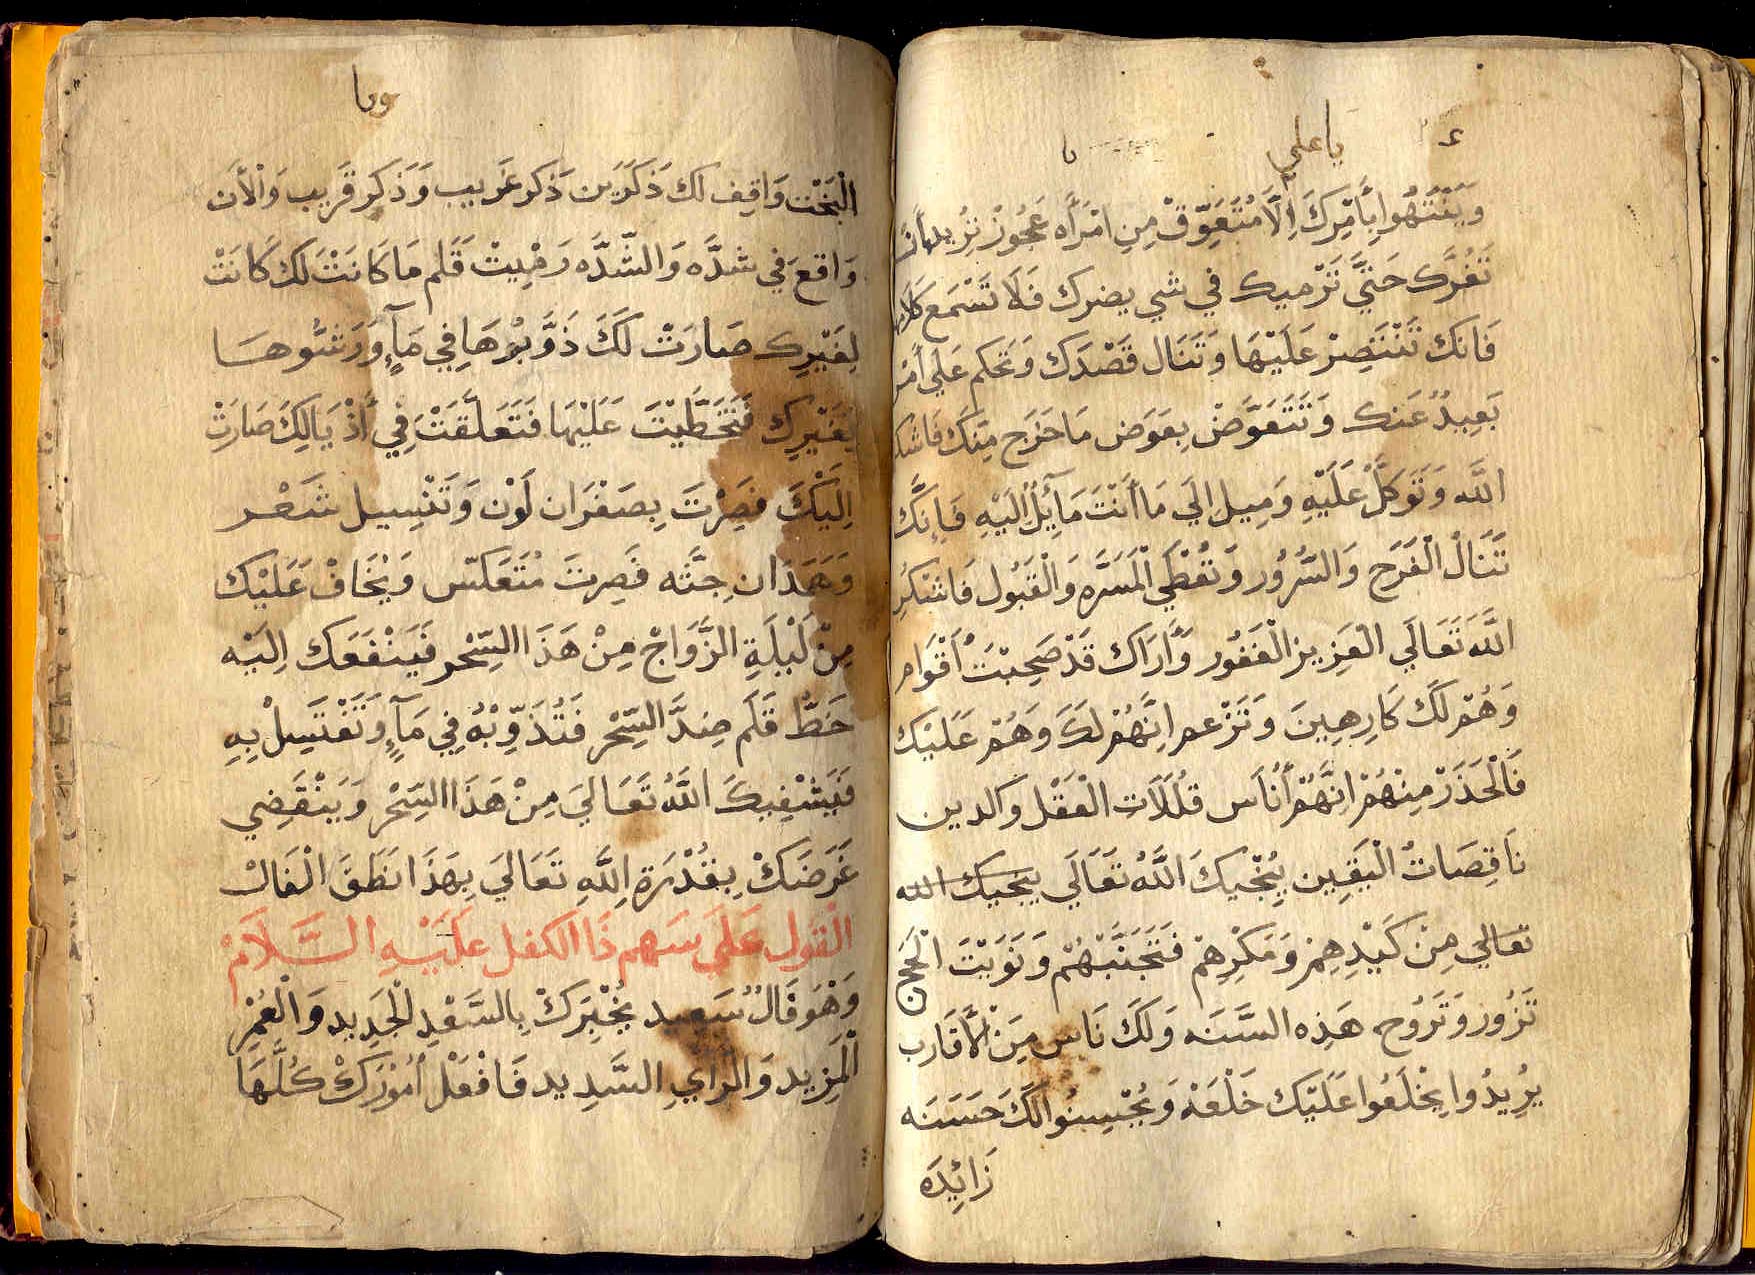 يا علي
وَيَنْتَهُوا بِأَمْرِكَ اِلَّا مُتَعَوِّقْ مِنِ امْرَأَه عَجُوزْ تِزِيدهَا
تَغُرَّكْ حَتَّي تَرْمِيكْ فِي شي يضرك فَلَا تَسْمَع كَلَامها
فَانك تَنْتَصِرْ عَلَيْهَا وَتَنَال قَصْدَك وَتحكم عَلَى أَمْر
بَعِيدٌ عَنك وَتَتَعَوَّضْ بِعَوَض مَا خَرَج مِنَكَ فَاشكر
اللَّه وَتَوَكَّلْ عَلَيْهِ وَمِيل اِلَي مَا أَنْتَ مَائِلٌ اُلَيْهِ فَاِنَّكَ
تَنَالْ الْفَرَح وَالسُّرُور وَتُعْطَي الْمَسَرَّه وَالْقَبُول فَاشْكُرِ
اللَّهَ تَعَالَي الْعَزِيز الْغَفُور وَأَرَاك قَدْ صَحِبْتَ أَقْوَام
وَهُمْ لَكَ كَارِهِينَ وَتَزْعم اِنَّهُمْ لَكَ وَهُمْ عَلَيْكَ
فَالْحَذَرْ مِنْهُمْ اِنَّهُمْ أُنَاس قُلَلَات الْعَقْل والدين
نَاقِصَاتُ الْيَقِين يُنْجِيكَ اللَّهُ تَعَالَي ينجيك الله
تعالي مِنْ كَيْدِهِمْ وَمَكْرِهِمْ فَتَجَنَّبْهُمْ وَنَوَيْتَ الْحَجْ
تَزُور وَتَرُوح هَذِه السَّنَه وَلَكَ نَاس مِنَ الْأَقَارب
يُرِيدُوا يَخْلَعُوا عَلَيْك خَلْعَهْ وَيُحْسِنُوا لَكَ حَسَنَه
زَائِدَه
الْبَخْت وَاقِف لك ذَكَرَين ذَكر غَرِيب وَذَكر قَرِيب وَالْأَن
وَاقعَ فِي شدَّه وَالشّدَّه رَمْيِتْ قَلم مَا كَانَتْ لَك كَانَتْ
لِغَيْرِك صَارَتْ لَكَ ذَوَّبُوهَا فِي مَآءٍ وَرَشُّوهَا
لِغَيْرِك فَتَخَطَّيْتَ عَلَيْهَا فَتَعَلَّقَتْ فِي أَذْيَالِكَ صَارَتْ
اِلَيْكَ فصِرْتَ بِصَفْرَان لَوْن وَتَنْسِيل شَعْر
وَهَدَان جِتَّه فَصِرتَ مُتَعَكّس وَيُخَافْ عَلَيْك
مِنْ لَيْلَةِ الزَّوَاجْ مِنْ هَذَا السِّحْر فَيَنْفَعَك اِلَيْه
خَطَّ قَلَم ضِدَّ السِّحْر فَتُذَوِّبْهُ فِي مَآءٍ وَتَغْتَسِلْ بِهِ
فَيَشْفِيكَ اللَّهُ تَعَالَيَ مِنْ هَذَا السِّحْر وَيَنْقَضِي
غَرَضَكْ بِقُدْرَةِ اللَّهِ تَعَالَيَ بِهَذَا نَطَقَ الْفَالْ
الْقول عَلَى سَهم ذَا الكفل عَلَيْهِ السَّلَامْ
وَهْوَ فَالٌ سَعِيد يُخْبِرَكْ بِالسَّعْدِ الْجَدِيد وَالْعُمْرِ
الْمَزِيد وَالرَايِ السَّدِيد فَافْعَلْ أُمُورَكَ كُلَّهَا